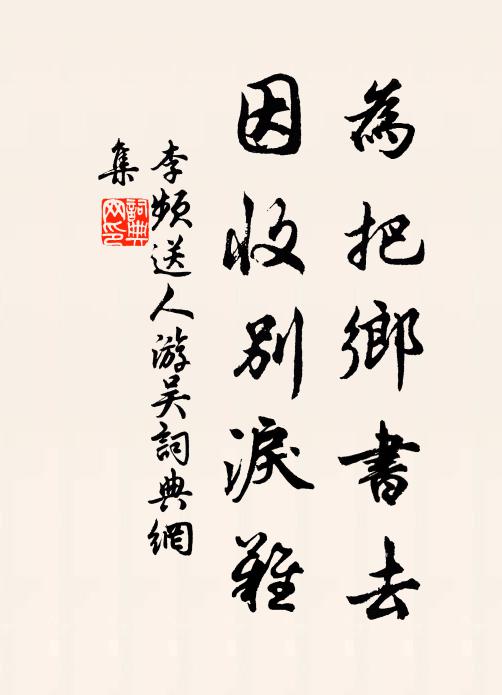 為把鄉書去
因收別淚難
李頻送人游吳詞典網
集
詞典
网印